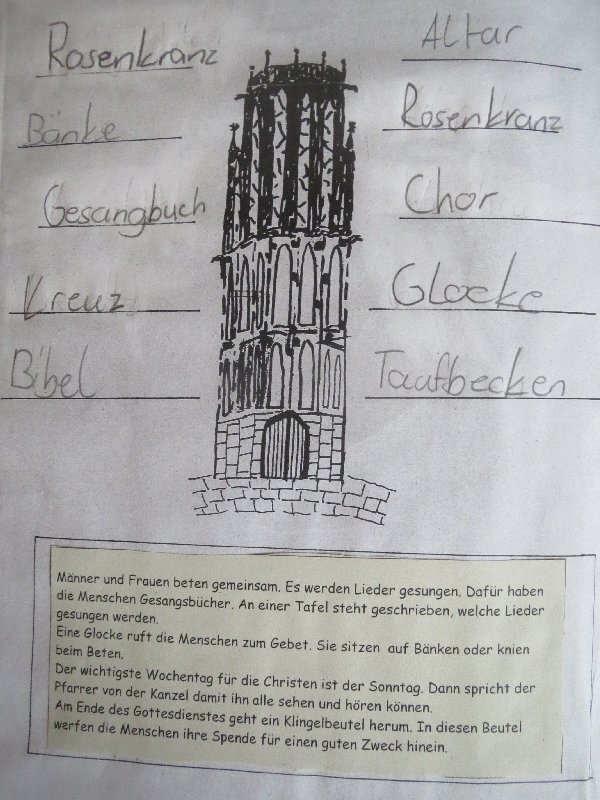 Rosenkranz
Altar
Bänke
Rosenkranz
Gesangbuch
Chor
Kreuz
Glocke
Bibel
Taufbecken
Männer und Frauen beten gemeinsam. Es werden Lieder gesungen. Dafür haben
die Menschen Gesangsbücher. An einer Tafel steht geschrieben, welche Lieder
gesungen werden.
Eine Glocke ruft die Menschen zum Gebet. Sie sitzen auf Bänken oder knien
beim Beten.
Der wichtigste Wochentag für die Christen ist der Sonntag. Dann spricht der
Pfarrer von der Kanzel damit ihn alle sehen und hören können.
Am Ende des Gottesdienstes geht ein Klingelbeutel herum. In diesen Beutel
werfen die Menschen ihre Spende für einen guten Zweck hinein.